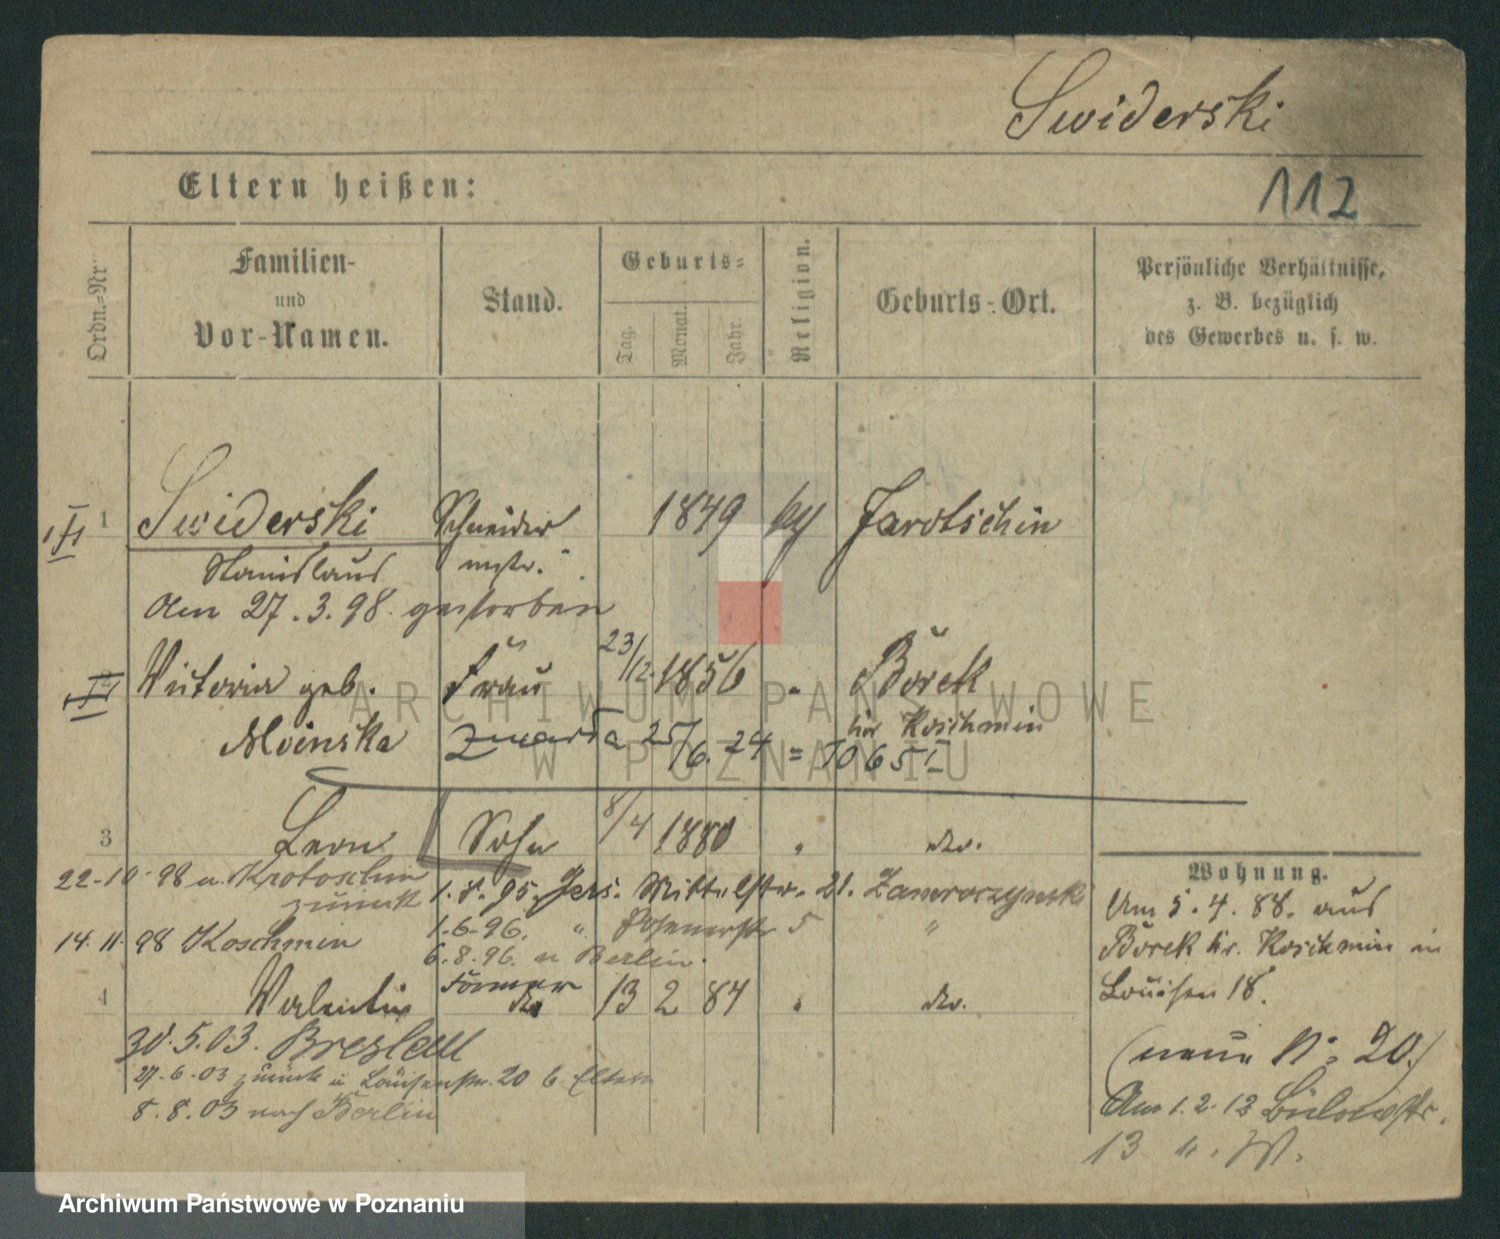 Swiderski
Eltern heißen:
112
Ordn.-Nr
Familien-
und
Vor-Namen.
Stand.
Geburts-
Tag.
Monat.
Jahr.
Religion.
Geburts-Ort.
Persönliche Verhältnisse,
z. B. bezüglich
des Gewerbes u. s. w.
1 Swiderski Schneider 1849 Jarotschin
Stanislaus mstr.
Am 27.3.98. gestorben
Victoria geb. Frau 23/12. 1856 " Borek
Kr Koschmin
Zmarła 25/6. 24 =
3 Leon Sohn 8/4 1880 " do.
22-10-98 n. Krotoschin
zurück
1.8.95. Jers. Mittelstr. 21.
1.6-96. " Posenerstr 5 "
14.11.98 Koschmin
6.8.96. n Berlin.
Former
4 Valentin do 13 2 84 " do.
30.5.03. Breslau
27.6.03 zurück Louisenstr. 20 b. Eltern
8.8.03 nach Berlin
Wohnung.
Am 5.4.88. aus
Borek Kr. Koschmin in
Louisen 18.
(neue N: 20.)
Am 1.2.12
13
ARCHIWUM PAŃSTWOWE
W POZNANIU
Archiwum Państwowe w Poznaniu